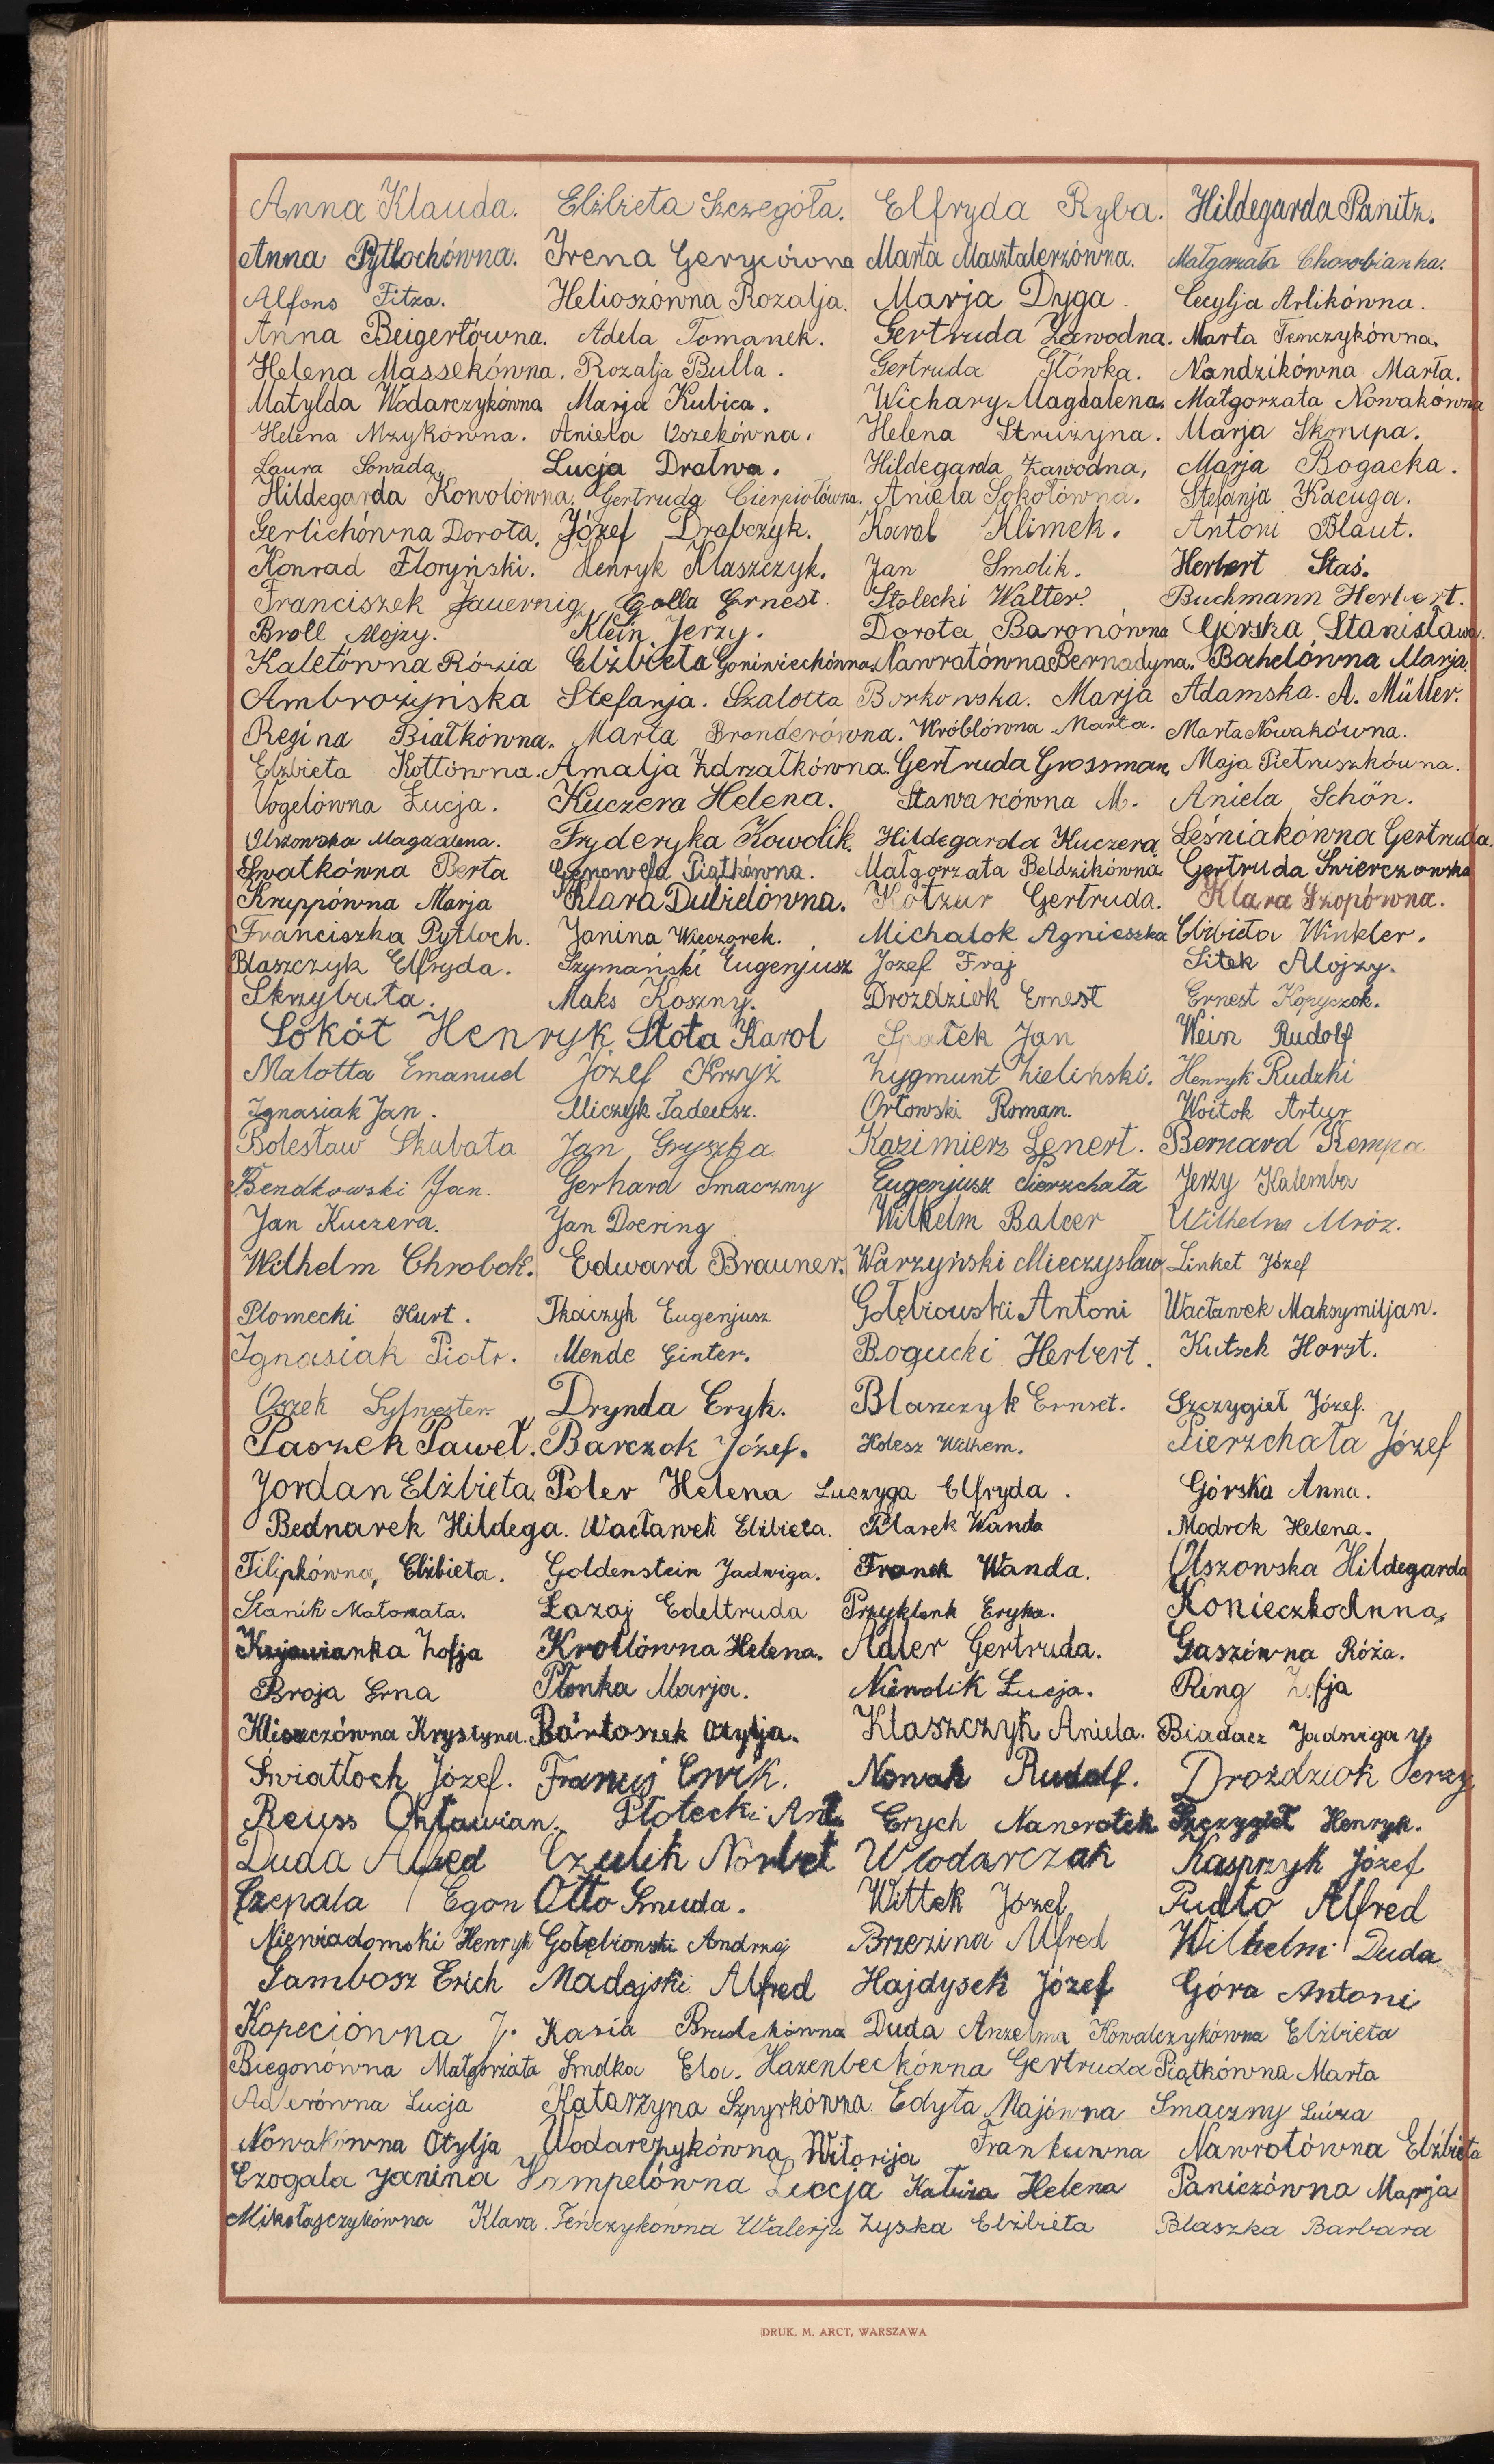 Anna Klauda. Elżbieta Szczegóła. Elfryda Ryba. Hildegarda Panitz.
Anna Pytlochówna. Irena Gerycówna Marta Masztalerzówna. Małgorzata Chorobianka.
Alfons Fitza. Helioszówna Rozalja. Marja Dyga. Cecylja Arlikówna.
Anna Beigertówna. Adela Tomanek. Gertruda Zawodna. Marta Tenczykówna.
Helena Massekówna. Rozalja Bulla. Gertruda Główka. Nandzikówna Marta.
Matylda Wodarczykówna Marja Kubica. Wichary Magdalena. Małgorzata Nowakówna
Helena Mzykówna. Aniela Oszekówna. Helena Strużyna. Marja Skrzupa.
Laura Sowada. Lucja Dratwa. Hildegarda Zawodna, Marja Bogacka.
Hildegarda Kowolówna. Gertruda Cierpiołówna. Aniela Sokołówna. Stefanja Kacuga.
Gerlichówna Dorota. Józef Drabczyk. Karol Klimek. Antoni Blaut.
Konrad Floryński. Henryk Klaszczyk. Jan Smolik. Herbert Staś.
Franciszek Jauernig Golla Ernest. Stolecki Walter. Buchmann Herbert.
Broll Alojzy. Klein Jerzy. Dorota Baronówna Górska Stanisława.
Kaletówna Rózia Elżbieta Goniwiechówna. Nawratówna Bernadyna. Bachelówna Marja.
Ambrożyńska Stefanja. Szalotta Borkowska. Marja Adamska. A. Müller.
Regina Białkówna. Marta Branderówna. Wróblówna Marta. Marta Nowakówna.
Elżbieta Kottówna. Amalja Zdrzałkówna. Gertruda Grossman, Maja Pietruszkówna.
Vogelówna Łucja. Kuczera Helena. Stawarcówna M. Aniela Schön.
Olszowska Magdalena. Fryderyka Kowolik. Hildegarda Kuczera. Leśniakówna Gertruda.
Swatkówna Berta Genowefa Piątkówna. Małgorzata Beldzikówna Gertruda Świerczowska
Kruppówna Marja Klara Dubielówna. Kotzur Gertruda. Klara Szopówna.
Franciszka Pytloch. Janina Wieczorek. Michalok Agnieszka Elżbieta Winkler.
Blaszczyk Elfryda. Szymański Eugenjusz Józef Fraj Sitek Alojzy.
Skrzybuta. Maks Koszny. Droździok Ernest Ernest Kopyczok.
Sokół Henryk Stota Karol Spałek Jan Wein Rudolf
Malotta Emanuel Józef Krzyż Zygmunt Zieliński. Henryk Rudzki
Ignasiak Jan. Miczejk Tadeusz. Orłowski Roman. Woitok Artur
Bolesław Skubała Jan Gryszka. Kazimierz Lenert. Bernard Kempa
Bendkowski Jan. Gerhard Smaczny Eugenjusz Pierzchała Jerzy Kalemba
Jan Kuczera. Jan Doering Wilhelm Balcer Wilhelm Mróz.
Wilhelm Chrobok. Edward Brauner. Warzyński Mieczysław Linket Józef
Plomecki Kurt. Tkaczyk Eugenjusz Gołębiowski Antoni Wacławek Maksymiljan.
Ignasiak Piotr. Mende Ginter. Bogucki Herbert. Kutsch Horst.
Oszek Sylwester Drynda Eryk. Blaszczyk Ernset. Szczygieł Józef.
Paszek Paweł. Barczok Józef. Holesz Wilhem. Pierzchała Józef
Jordan Elżbieta. Poler Helena Luczyga Elfryda. Górska Anna.
Bednarek Hildega. Wacławek Elżbieta. Pilarek Wanda Modrok Helena.
Filipkówna, Elżbieta. Goldenstein Jadwiga. Franek Wanda. Olszowska Hildegarda
Stanik Małorzata. Łazaj Edeltruda Przyklenk Eryka. Konieczko Anna,
Kujawianka Zofja Krollówna Helena. Adler Gertruda. Gaszówna Róża.
Broja Erna Płonka Marja. Niewolik Łucja. Ring Zofja
Kliszczówna Krystyna. Bartoszek Otylja. Klaszczyk Aniela. Biadacz Jadwiga
Światłoch Józef. Francuj Erwik. Nowak Rudolf. Droździok Jerzy
Reuss Oktawian. Płotecki Ant. Erych Nawrotek Szczygieł Henryk.
Duda Alfred Czulik Norbet Wlodarczak Kasprzyk Józef
Czepala Egon Otto Smuda. Wittek Józef Pudło Alfred
Niewiadomski Henryk Gołebionski Andrzej Brzezina Alfred Wilhelm Duda
Gambosz Erich Madajski Alfred Hajdysek Józef Góra Antoni
Kopeciówna J. Kasia Brudekówna Duda Anzelma Kowalczykówna Elżbieta
Biegonówna Małgorzata Smdka Ela. Hazenbeckówna Gertruda Piątkówna Marta
Adlerówna Lucja Katarzyna Szpyrkówna. Edyta Majówna Smaczny Luiza
Nowakówna Otylja Wodarczykówna Witorija Frankuwna Nawrotówna Elżbieta
Czogala Janina Hompelówna Luccja Kaluza Helena Paniczówna Marja
Mikołajczykówna Klara. Teńczykówna Walerja Zyska Elżbieta Blaszka Barbara
DRUK. M. ARCT, WARSZAWA